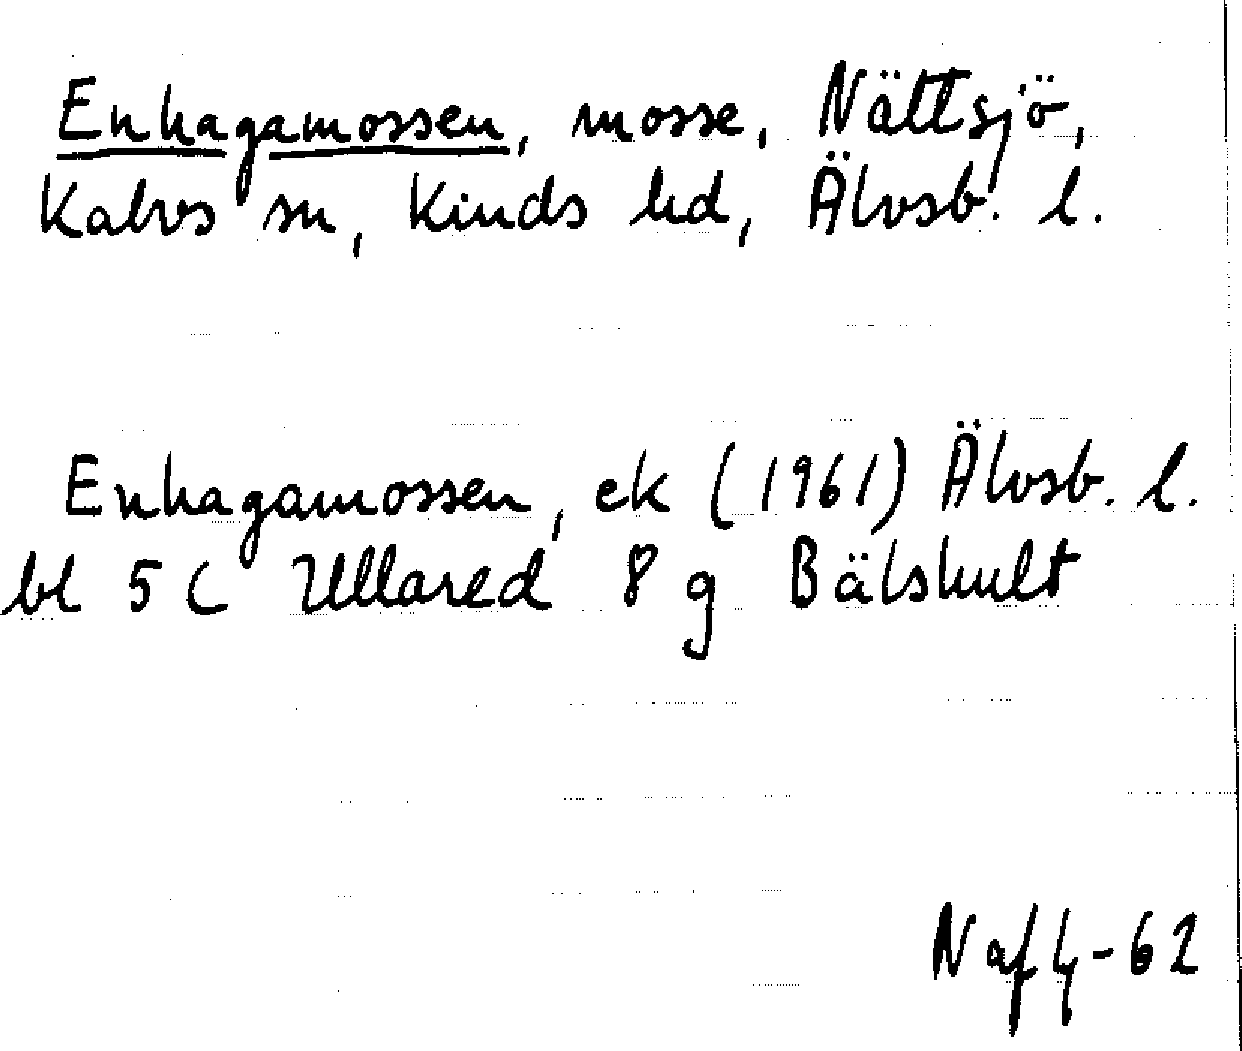 Enhagamossen, mosse, Nättsjö,
Kalvs sn, Kinds hd, Älvsb. l.
Enhagamossen, ek (1961) Älvsb. l.
bl 5 C Ullared 8 g Bälshult
N af 4-62